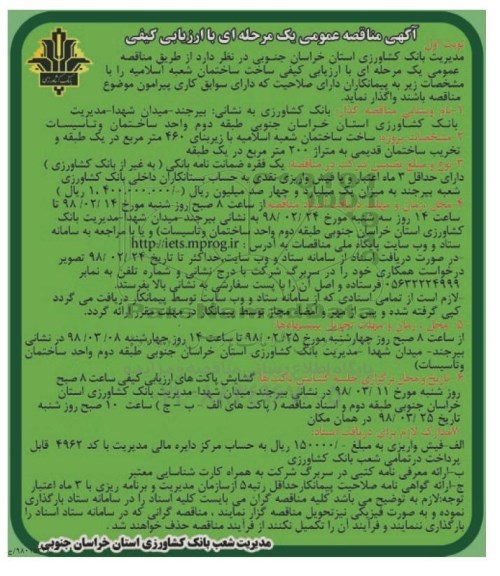 آگهی مناقصه عمومی یک مرحله ای با ارزیابی کیفی
نوبت اول
مدیریت بانک کشاورزی استان خراسان جنوبی در نظر دارد از طریق مناقصه
عمومی یک مرحله ای با ارزیابی کیفی ساخت ساختمان شعبه اسلامیه را با
مشخصات زیر به پیمانکاران دارای صلاحیت که دارای سوابق کاری پیرامون موضوع
مناقصه باشند واگذار نماید.
۱-نام ونشانی مناقصه گذار: بانک کشاورزی به نشانی: بیرجند-میدان شهدا-مدیریت
بانک کشاورزی استان خراسان جنوبی طبقه دوم واحد ساختمان وتاسیسات
۲-مشخصات پروژه: ساخت ساختمان شعبه اسلامیه با زیربنای ۴۶۰ متر مربع در یک طبقه و
تخریب ساختمان قدیمی به متراژ ۲۰۰ متر مربع در یک طبقه
۳-نوع و مبلغ تضمین شرکت در مناقصه: یک فقره ضمانت نامه بانکی ( به غیر از بانک کشاورزی )
دارای حداقل ۳ ماه اعتبار و یا فیش واریزی نقدی به حساب بستانکاران داخلی بانک کشاورزی
شعبه بیرجند به مبلغ یک میلیارد و چهار صد میلیون ریال (۱،۴۰۰،۰۰۰،۰۰۰/- ریال )
۴-محل، زمان و مهلت دریافت اسناد مناقصه:از ساعت ۸ صبح روز شنبه مورخ ۹۸/۰۲/۱۴ تا
ساعت ۱۴ روز سه شنبه مورخ ۹۸/۰۲/۲۴ به نشانی بیرجند-میدان شهدا-مدیریت بانک
کشاورزی استان خراسان جنوبی طبقه دوم واحد ساختمان وتاسیسات) و یا با مراجعه به سامانه
ستاد و وب سایت پایگاه ملی مناقصات به آدرس : http://iets.mprog.ir
-در صورت دریافت اسناد از سامانه ستاد و وب سایت،حداکثر تا تاریخ ۹۸/۰۲/۲۴ تصویر
درخواست همکاری خود را در سربرگ شرکت با درج نشانی و شماره تلفن به نمابر
۰۵۶۳۲۲۲۴۹۹۹ فرستاده و اصل آن را با پست سفارشی به نشانی بالا بفرستد.
-لازم است از تمامی اسنادی که از سامانه ستاد و وب سایت توسط پیمانکار دریافت می گردد
کپی گرفته شده و پس از مهر و امضاء مجاز توسط پیمانکار در مهلت مقرر ارائه گردد.
۵- محل ، زمان و مهلت تحویل پیشنهادها:
از ساعت ۸ صبح روز چهارشنبه مورخ ۹۸/۰۲/۲۵ تا ساعت ۱۴ روز چهارشنبه ۹۸/۰۳/۰۸ در نشانی
بیرجند- میدان شهدا -مدیریت بانک کشاورزی استان خراسان جنوبی طبقه دوم واحد ساختمان
وتاسیسات)
۶-تاریخ و محل برگزاری جلسه گشایش پاکت ها: گشایش پاکت های ارزیابی کیفی ساعت ۸ صبح
روز شنبه مورخ ۹۸/۰۳/۱۱ در نشانی بیرجند-میدان شهدا مدیریت بانک کشاورزی استان
خراسان جنوبی طبقه دوم و اسناد مناقصه ( پاکت های الف - ب - ج ) ساعت ۱۰ صبح روز شنبه
تاریخ ۹۸/۰۳/۲۵ در همان مکان
۷-مدارک لازم برای دریافت اسناد:
الف-فیش واریزی به مبلغ ۱۵۰۰،۰۰۰ ریال به حساب مرکز دایره مالی مدیریت با کد ۴۹۶۲ قابل
پرداخت درتمامی شعب بانک کشاورزی
ب-ارائه معرفی نامه کتبی در سربرگ شرکت به همراه کارت شناسایی معتبر
ج-ارائه گواهی نامه صلاحیت پیمانکارحداقل رتبه۵ ازسازمان مدیریت و برنامه ریزی با ۳ ماه اعتبار
توجه:لازم به توضیح می باشد کلیه مناقصه گران می بایست کلیه اسناد را در سامانه ستاد بارگذاری
نموده و به صورت فیزیکی نیزتحویل مناقصه گزار نمایند ، مناقصه گرانی که در سامانه ستاد اسناد را
بارگذاری ننمایند و فرآیند آن را تکمیل نکنند از فرآیند مناقصه حذف خواهند شد .
مدیریت شعب بانک کشاورزی استان خراسان جنوبی